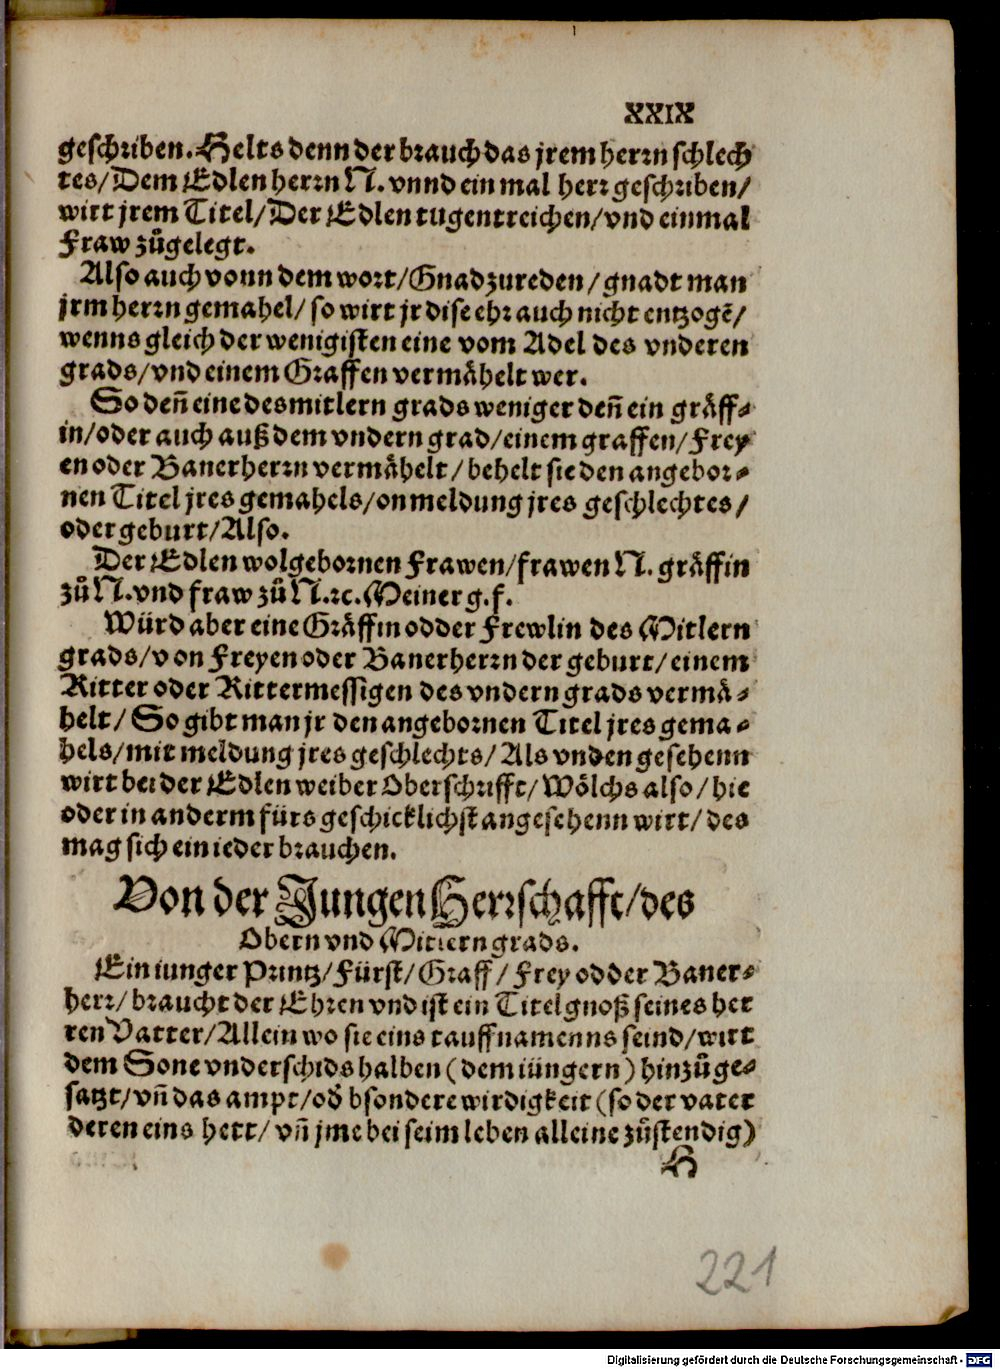 XXIX
geschriben. Helts denn der brauch das jrem herrn schlech
tes/ Dem Edlen herrn N. vnnd ein mal herr geschriben/
wirt jrem Titel/ Der Edlen tugentreichen/ vnd einmal
Fraw zůgelegt.
Also auch vonn dem wort/ Gnad zureden/ gnadt man
jrm herrn gemahel/ so wirt jr dise ehr auch nicht entzogē/
wenns gleich der wenigisten eine vom Adel des vnderen
grads/ vnd einem Graffen vermåhelt wer.
So deñ eine des mitlern grads weniger deñ ein gråff-
in/ oder auch auß dem vndern grad/ einem graffen/ Frey
en oder Banerherrn vermåhelt/ behelt sie den angebor-
nen Titel jres gemahels/ on meldung jres geschlechtes/
oder geburt/ Also.
Der Edlen wolgebornen Frawen/ frawen N. gråffin
zů N. vnd fraw zů N. ꝛc. Meiner g. f.
Würd aber eine Gråffin odder Frewlin des Mitlern
grads/ von Freyen oder Banerherrn der geburt/ einem
Ritter oder Rittermessigen des vndern grads vermå-
helt/ So gibt man jr den angebornen Titel jres gema-
hels/ mit meldung jres geschlechts/ Als vnden gesehenn
wirt bei der Edlen weiber Oberschrifft/ Wölchs also/ hie
oder in anderm fürs geschicklichst angesehenn wirt/ des
mag sich ein ieder brauchen.
Von der Jungen Herrschafft/ des
Obern vnd Mitlern grads.
Ein iunger Printz/ Fürst/ Graff/ Frey odder Baner-
herr/ braucht der Ehren vnd ist ein Titelgnoß seines her
ren Vatter/ Allein wo sie eins tauffnamenns seind/ wirt
dem Sone vnderschids halben (dem iüngern) hinzůge-
satzt/ vñ das ampt/ od̓ bsondere wirdigkeit (so der vater
deren eins hett/ vñ jme bei seim leben alleine zůstendig)
H
221
Digitalisierung gefördert durch die Deutsche Forschungsgemeinschaft - DFG